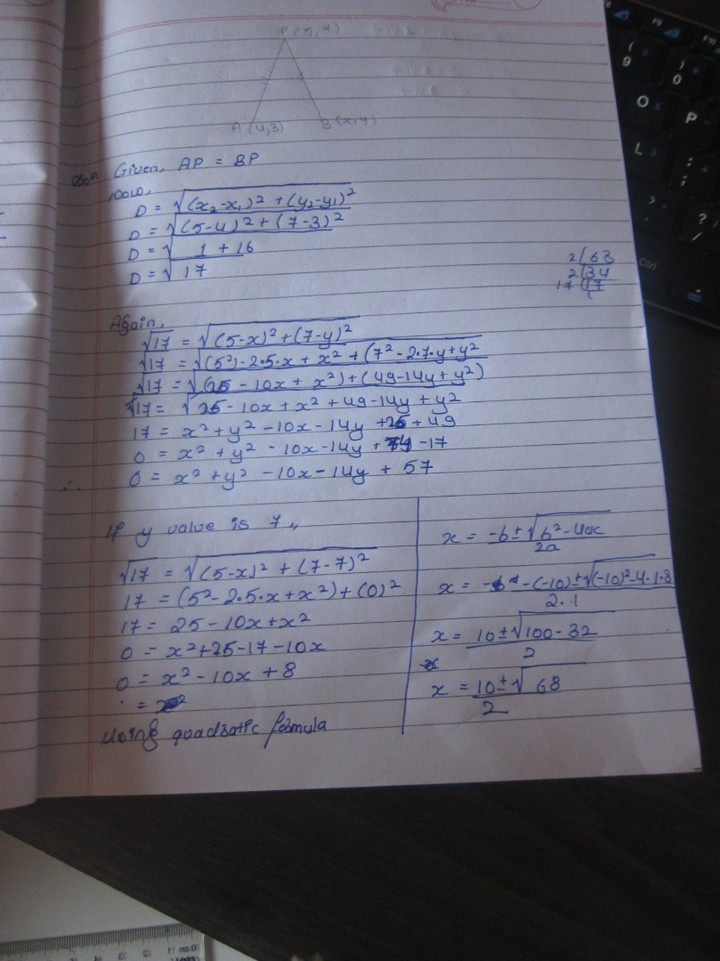 P(5,7)
A(4,3) B(x,y)
Soln Given, AP = BP
Now,
D = √(x₂-x₁)² + (y₂-y₁)²
D = √(5-4)² + (7-3)²
D = √1 + 16
D = √17
2 68
2 34
17 17
1
Again,
√17 = √(5-x)² + (7-y)²
√17 = √(5²)-2·5·x + x² + (7²-2·7·y+y²
√17 = √(25 - 10x + x²) + (49-14y+y²)
√17 = √25-10x+x²+49-14y+y²
17 = x²+y²-10x-14y+25+49
0 = x²+y²-10x-14y+74-17
∴ 0 = x²+y²-10x-14y+57
If y value is 7,,
√17 = √(5-x)² + (7-7)²
17 = (5²-2·5·x+x²)+(0)²
17 = 25-10x+x²
0 = x²+25-17-10x
0 = x²-10x+8
=
Using quadratic formula
x = -b±√b²-4ac
2a
x = -(-10)±√(-10)²-4·1·8
2·1
x = 10±√100-32
2
x = 10±√68
2
Ctrl
( 9
) 0
O
P
L
:
;
?
/